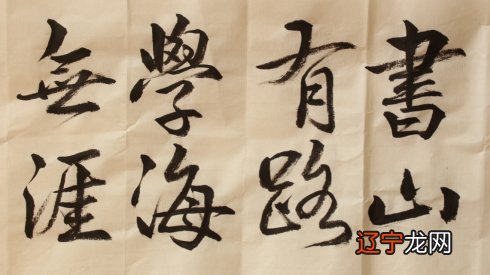 書山
有路
學海
無涯
辽宁龙网